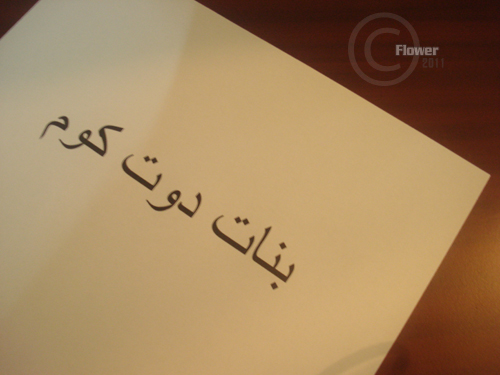 بنات دوت كوم
© Flower
2011